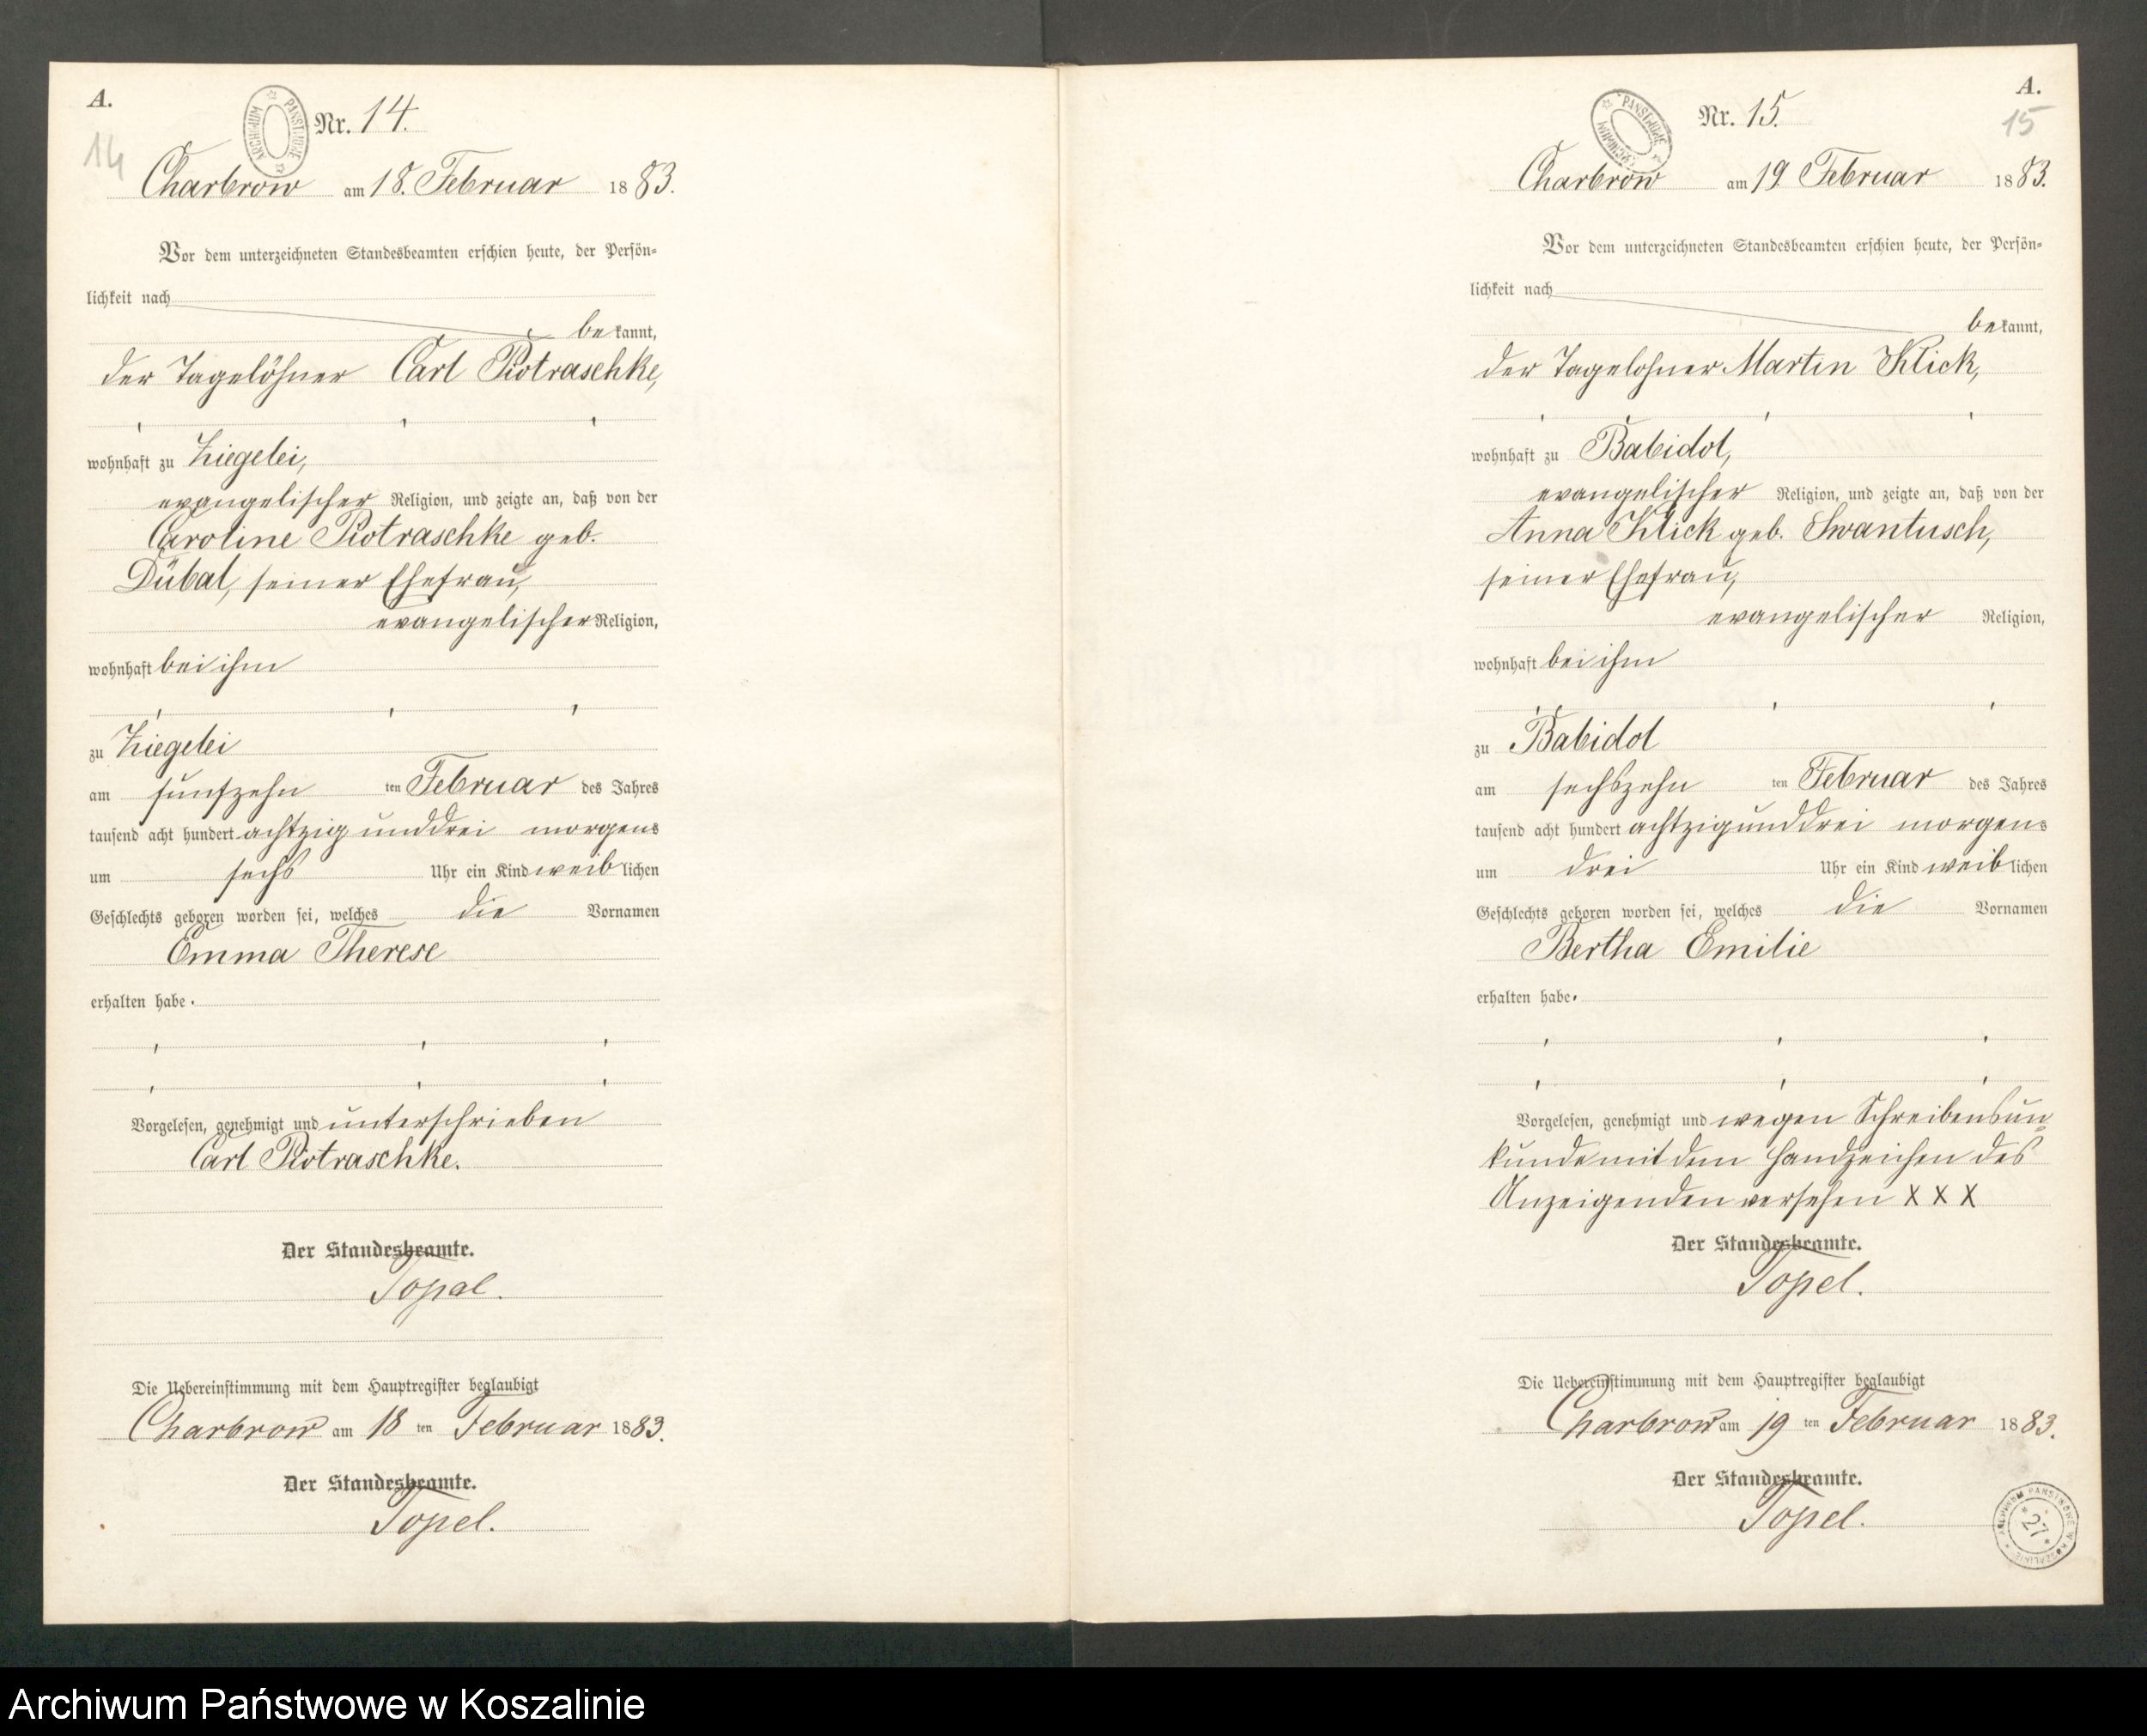 A.
ARCHIWUM PAŃSTWOWE
Nr. 14.
14
Charbrow am 18. Februar 1883.
Vor dem unterzeichneten Standesbeamten erschien heute, der Persön-
lichkeit nach
bekannt,
der Tagelöhner Carl Piotraschke,
wohnhaft zu Ziegelei,
evangelischer Religion, und zeigte an, daß von der
Caroline Piotraschke geb.
Dübal, seiner Ehefrau,
evangelischer Religion,
wohnhaft bei ihm
zu Ziegelei
am fünfzehn ten Februar des Jahres
tausend acht hundert achtzig und drei morgens
um sechs Uhr ein Kind weiblichen
Geschlechts geboren worden sei, welches die Vornamen
Emma Therese
erhalten habe.
Vorgelesen, genehmigt und unterschrieben
Carl Piotraschke.
Der Standesbeamte.
Topel.
Die Uebereinstimmung mit dem Hauptregister beglaubigt
Charbrow am 18 ten Februar 1883.
Der Standesbeamte.
Topel.
A.
ARCHIWUM PAŃSTWOWE
Nr. 15.
15
Charbrow am 19. Februar 1883.
Vor dem unterzeichneten Standesbeamten erschien heute, der Persön-
lichkeit nach
bekannt,
der Tagelöhner Martin Klick,
wohnhaft zu Babidol,
evangelischer Religion, und zeigte an, daß von der
Anna Klick geb. Swantusch,
seiner Ehefrau,
evangelischer Religion,
wohnhaft bei ihm
zu Babidol
am sechszehn ten Februar des Jahres
tausend acht hundert achtzig und drei morgens
um drei Uhr ein Kind weiblichen
Geschlechts geboren worden sei, welches die Vornamen
Bertha Emilie
erhalten habe.
Vorgelesen, genehmigt und wegen Schreibensun-
kunde mit dem Handzeichen des
Anzeigenden versehen X X X
Der Standesbeamte.
Topel.
Die Uebereinstimmung mit dem Hauptregister beglaubigt
Charbrow am 19 ten Februar 1883.
Der Standesbeamte.
Topel.
ARCHIWUM PAŃSTWOWE W KOSZALINIE
27
Archiwum Państwowe w Koszalinie